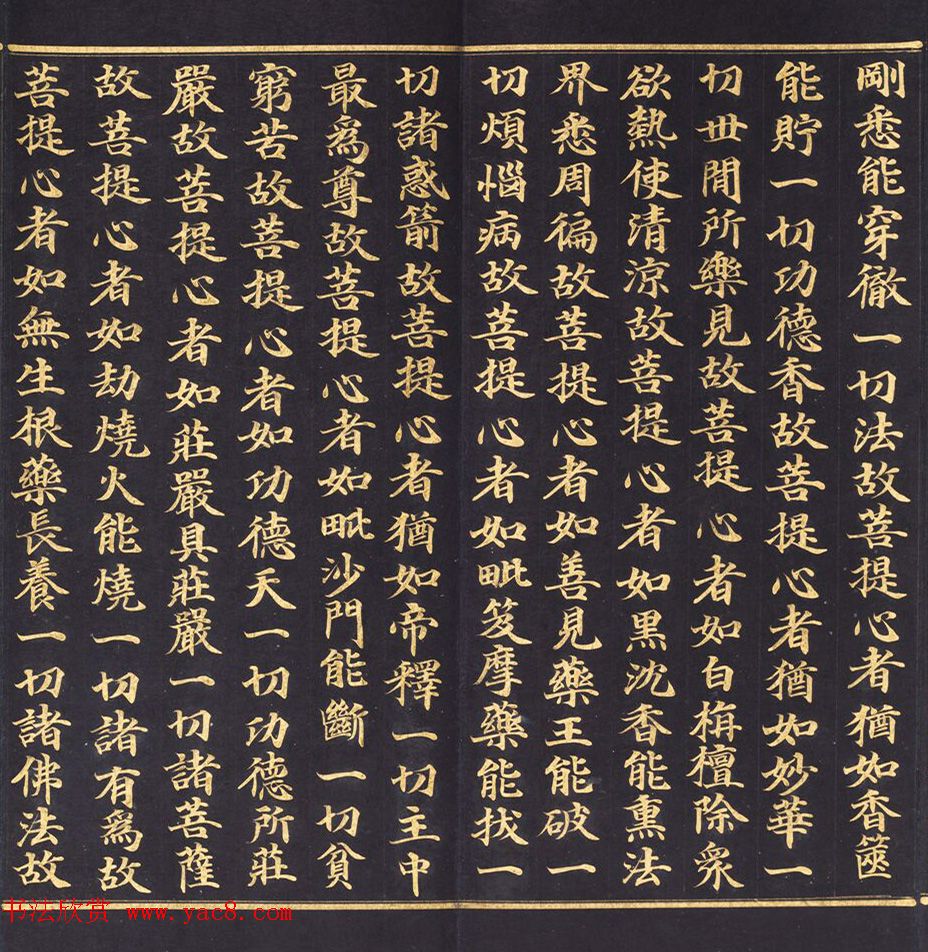 剛悉能穿徹一切法故菩提心者猶如香篋
能貯一切功德香故菩提心者猶如妙華一
切世間所樂見故菩提心者如白栴檀除衆
欲熱使清涼故菩提心者如黑沈香能熏法
界悉周徧故菩提心者如善見藥王能破一
切煩惱病故菩提心者如毗笈摩藥能拔一
切諸惑箭故菩提心者猶如帝釋一切主中
最爲尊故菩提心者如毗沙門能斷一切貧
窮苦故菩提心者如功德天一切功德所莊
嚴故菩提心者如莊嚴具莊嚴一切諸菩薩
故菩提心者如劫燒火能燒一切諸有爲故
菩提心者如無生根藥長養一切諸佛法故
书法欣赏 www.yac8.com